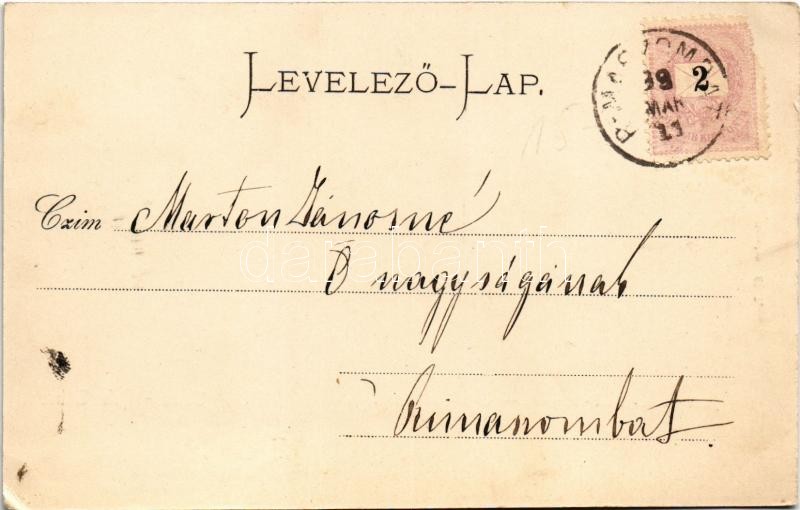 LEVELEZŐ-LAP.
2
99
MAR
11
Czim Marton Jánosné
Ő nagyságának
darabanth
Rimaszombat